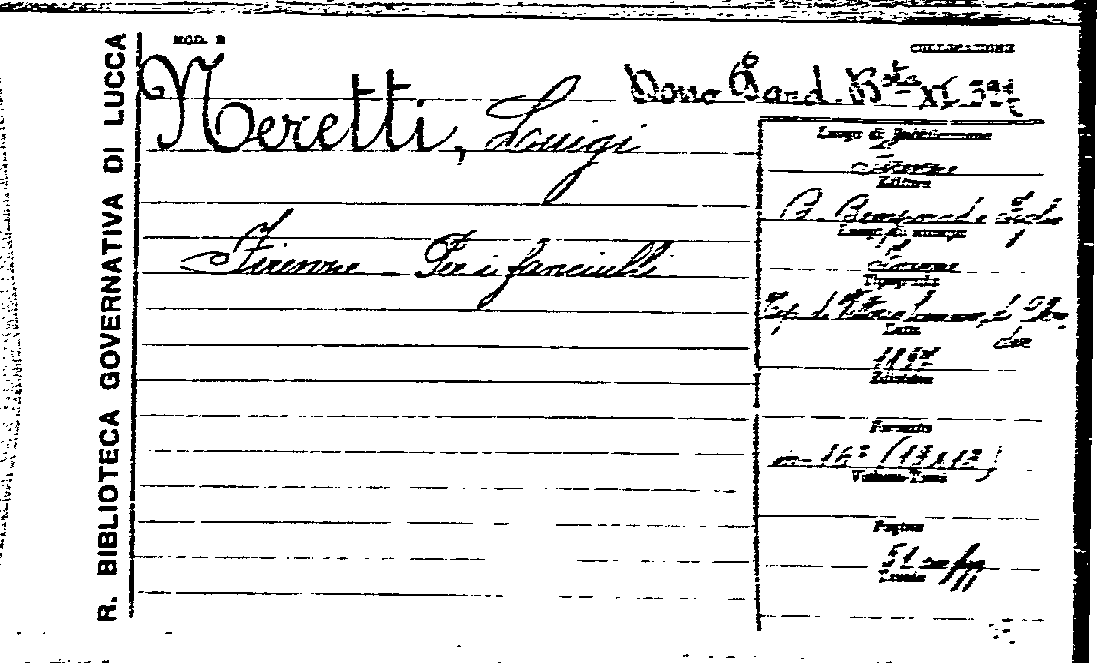 R. BIBLIOTECA GOVERNATIVA DI LUCCA
MOD. B
COLLOCAZIONE
Neretti, Luigi
Dono Band. Bta XI.
Firenze - Per i fanciulli
Luogo di Pubblicazione
Firenze
Editore
R. Bemporad e Figlio
Luogo di stampa
Firenze
Tipografia
Tip. di
Data
Edizione
Formato
in-16° (13x12)
Volume-Tomo
Pagine
51